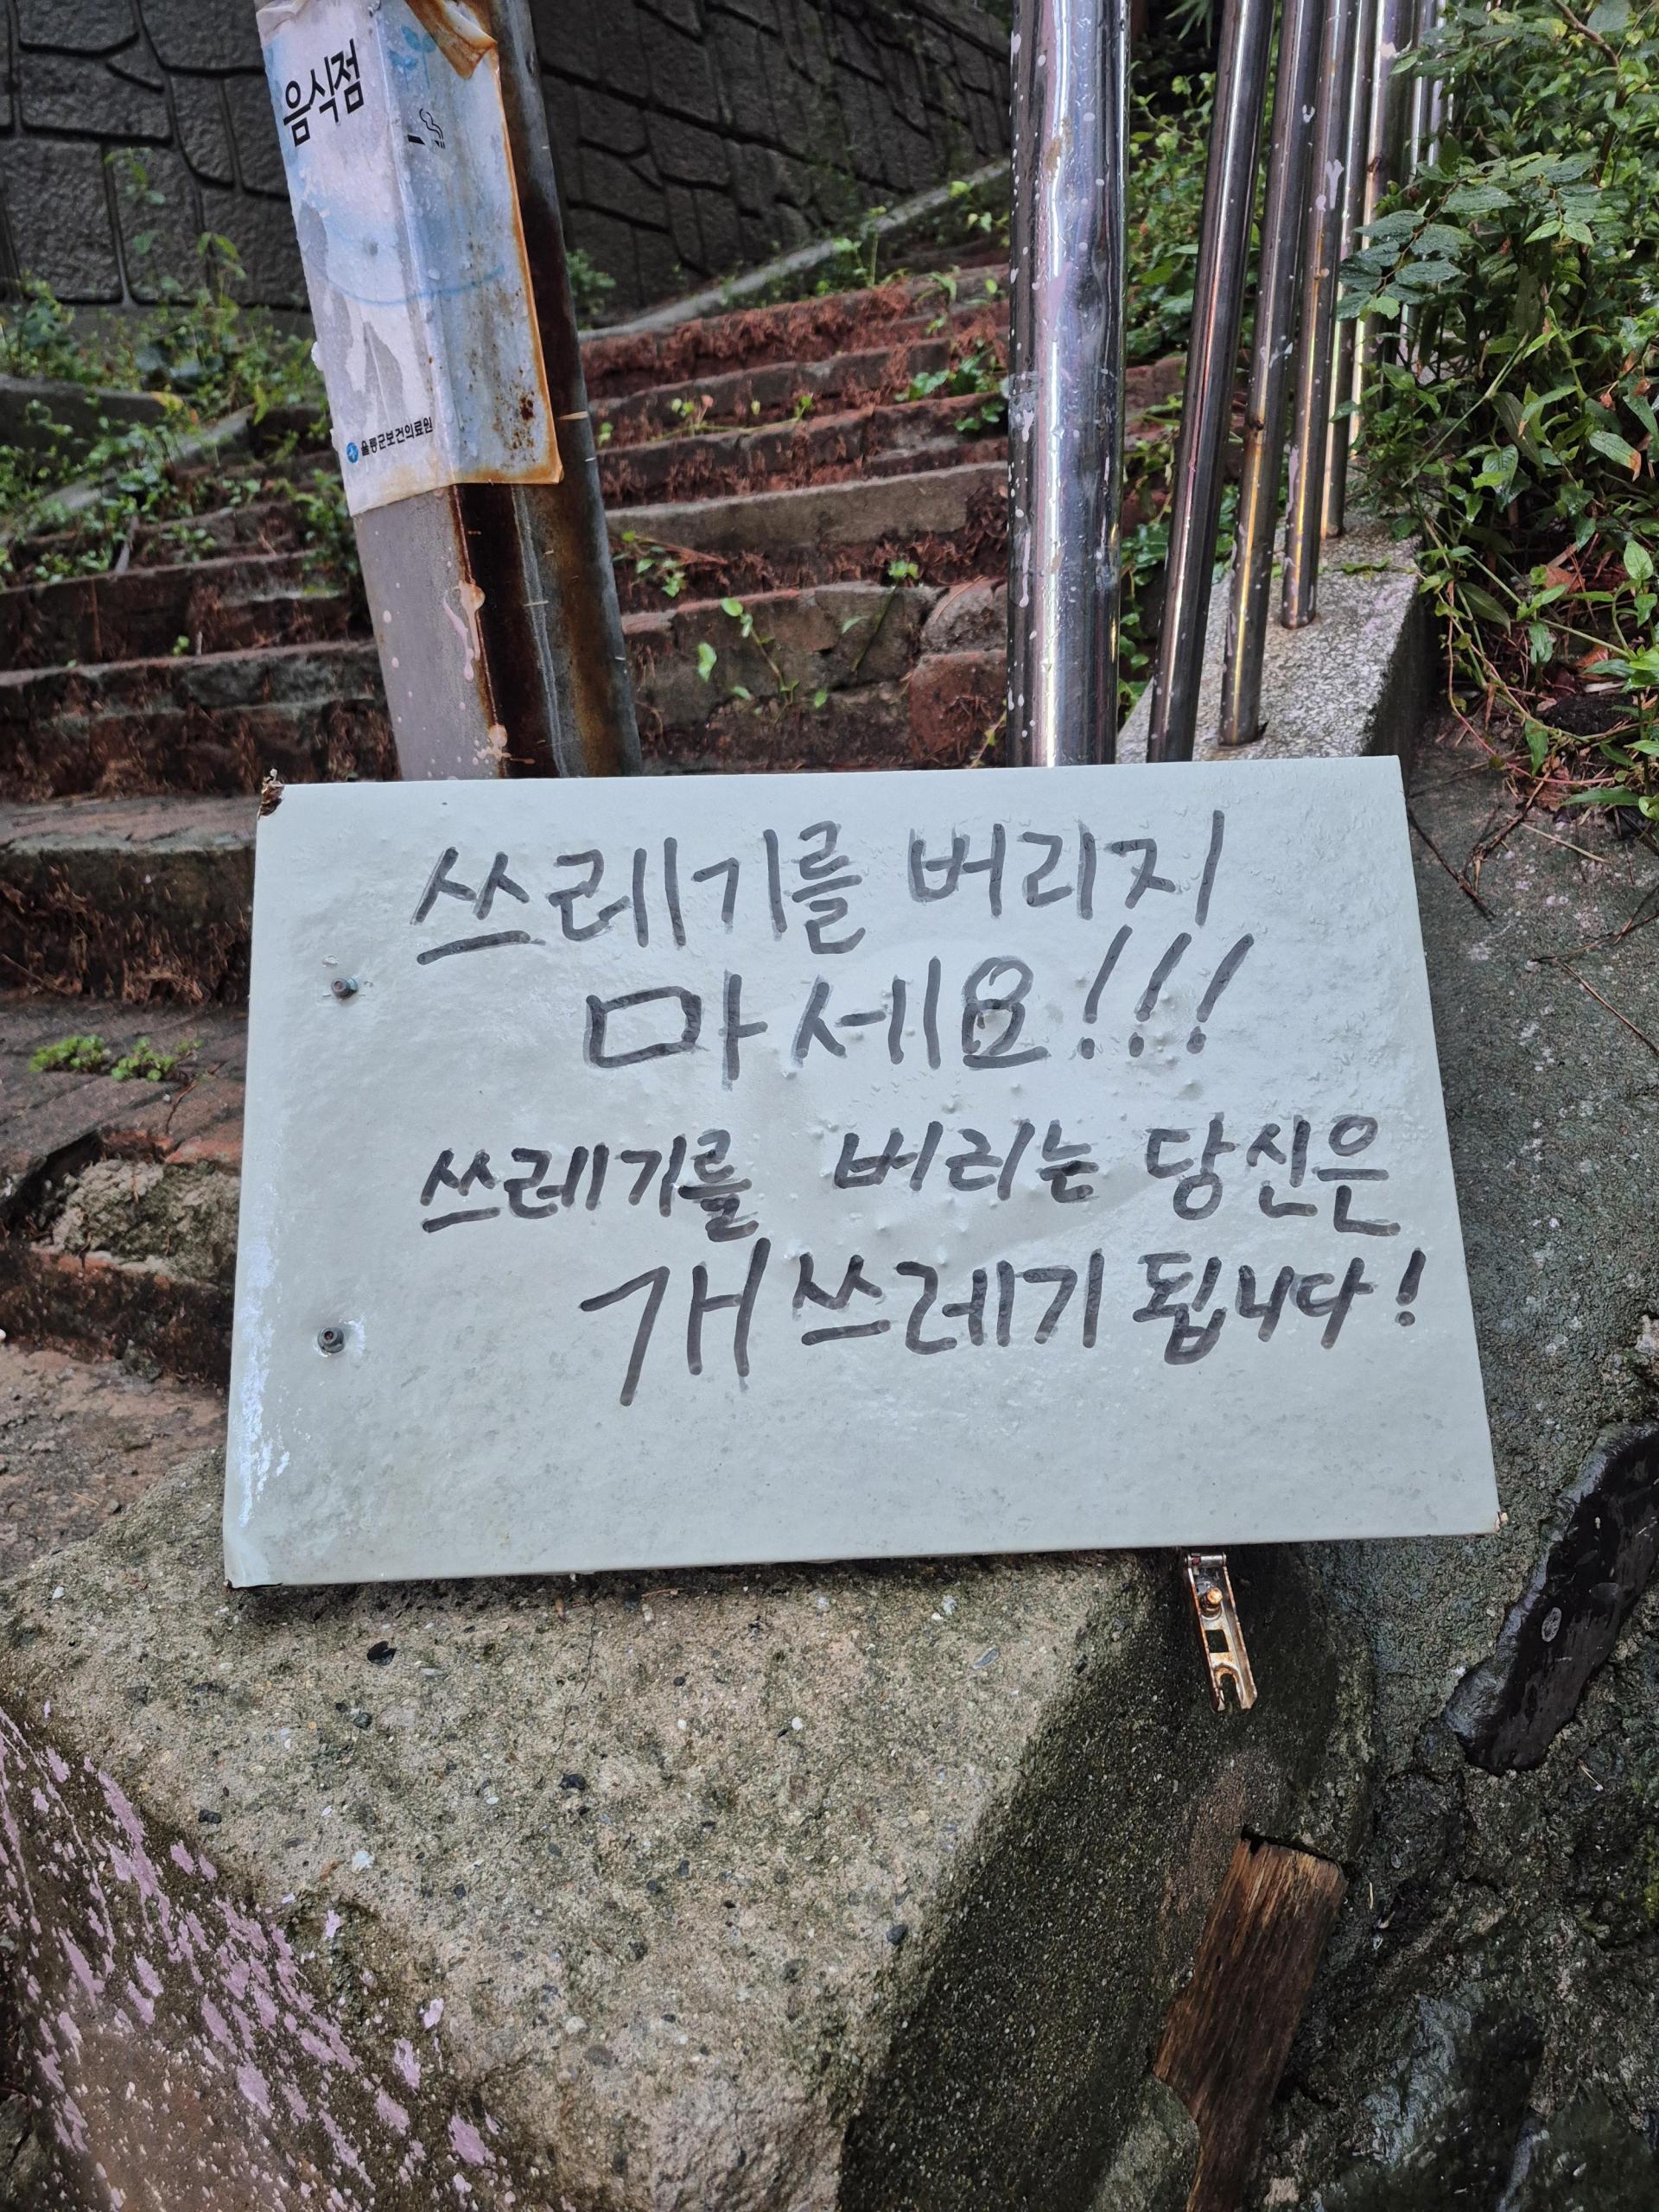 음식점
울릉군보건의료원
쓰레기를 버리지
마세요!!!
쓰레기를 버리는 당신은
개쓰레기 됩니다!